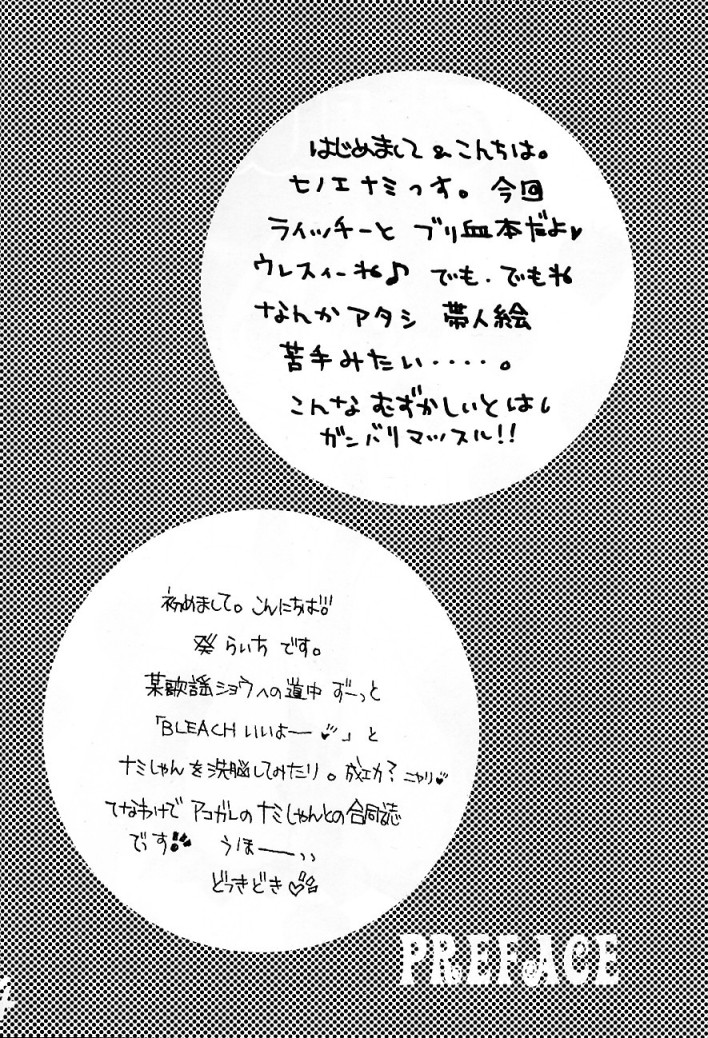 はじめまして&こんちは。
七ノエナミっす。今回
ライッチーと ブリ血本だよ♥
ウレスィーね♪ でも・でもね
なんかアタシ 帯人絵
苦手みたい・・・・。
こんな むずかしいとはい
ガンバリマッスル!!
初めまして。こんにちは!!
癸 らいち です。
某歌謡ショウへの道中 ずーっと
「BLEACHいいよー♥」と
ナミしゃんを洗脳してみたり。成功?ニヤリ♥
てなわけで アコガレのナミしゃんとの合同誌
でっす!! うほーっっ
どっきどき♥
PREFACE
4